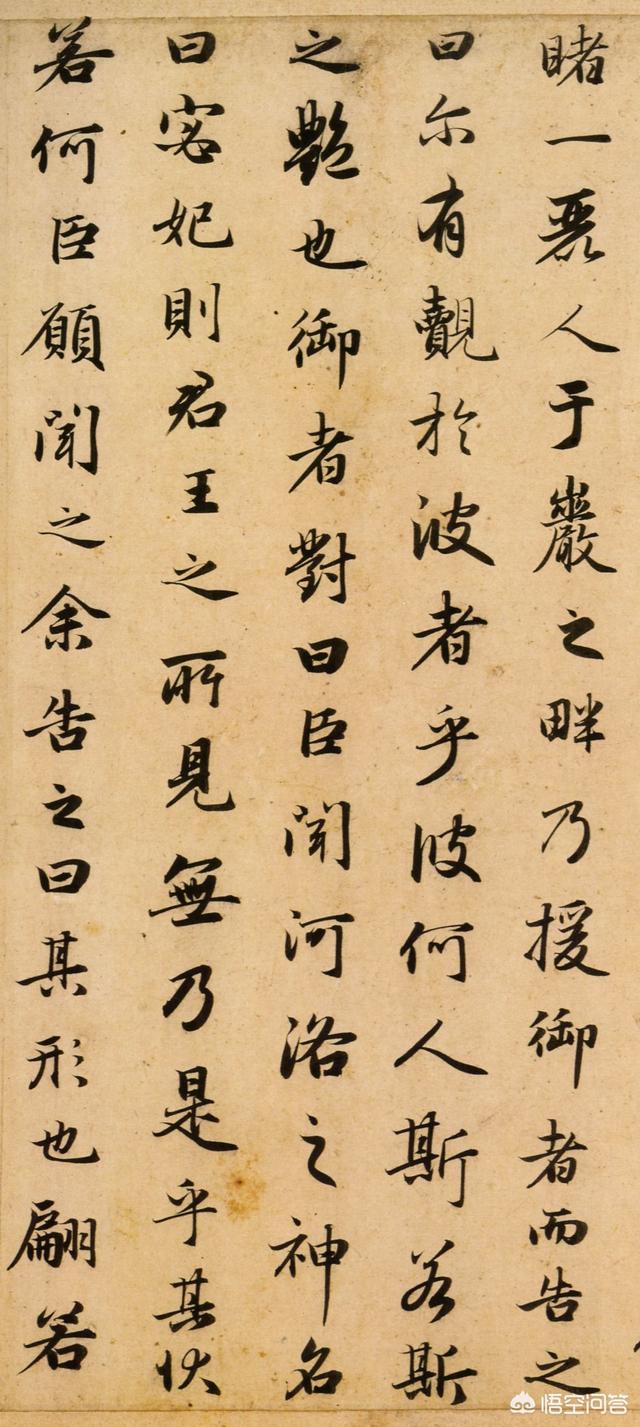 睹一麗人于巖之畔乃援御者而告之
曰尔有觀於彼者乎彼何人斯若斯
之艷也御者對曰臣聞河洛之神名
曰宓妃則君王之所見無乃是乎其狀
若何臣願聞之余告之曰其形也翩若
悟空问答